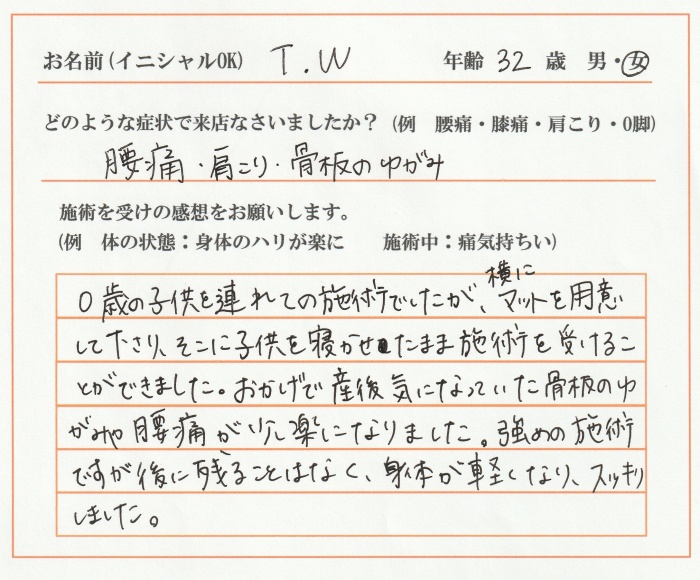 お名前(イニシャルOK) T.W 年齢 32 歳 男・女
どのような症状で来店なさいましたか? (例 腰痛・膝痛・肩こり・O脚)
腰痛・肩こり・骨板のゆがみ
施術を受けの感想をお願いします。
(例 体の状態:身体のハリが楽に 施術中:痛気持ちい)
横に
0歳の子供を連れての施術でしたが、マットを用意
して下さり、そこに子供を寝かせたまま施術を受けるこ
とができました。おかげで産後気になっていた骨板のゆ
がみや腰痛が少し楽になりました。強めの施術
ですが後に残ることはなく、身体が軽くなり、スッキリ
しました。